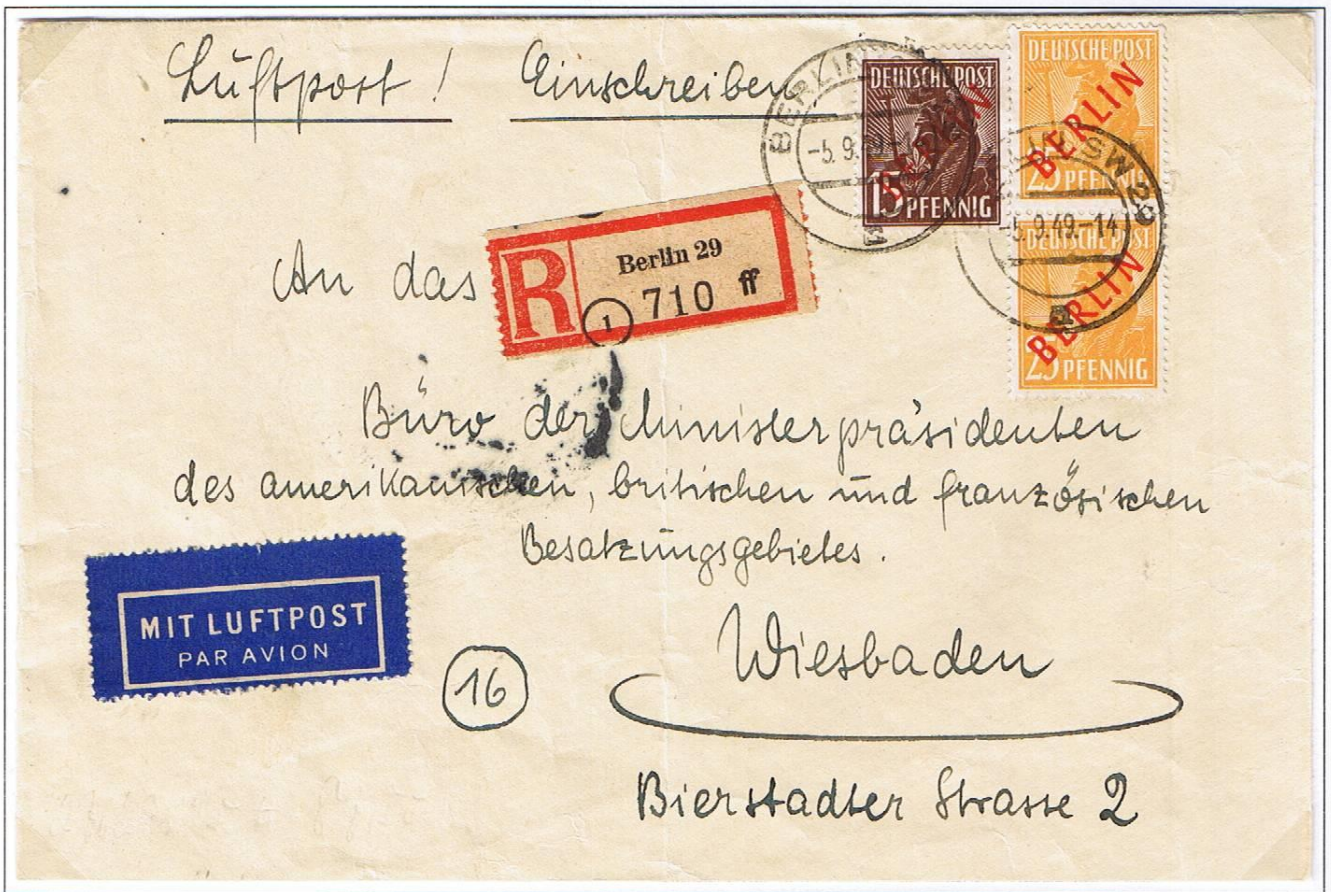 Luftpost! Einschreiben
DEUTSCHE POST
BERLIN
15 PFENNIG
DEUTSCHE POST
BERLIN
25 PFENNIG
DEUTSCHE POST
BERLIN
25 PFENNIG
BERLIN
-5.9.
SW 29
-5.9.49.-14
a
R Berlin 29
1 710 ff
An das
Büro der Ministerpräsidenten
des amerikanischen, britischen und französischen
Besatzungsgebietes.
MIT LUFTPOST
PAR AVION
16
Wiesbaden
Bierstadter Strasse 2